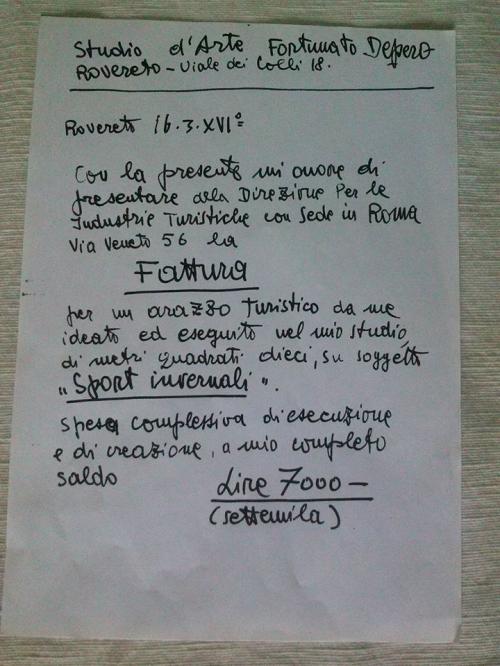 Studio d'Arte Fortunato Depero
Rovereto - Viale dei Colli 18.
Rovereto 16.3.XVIº
Con la presente mi onoro di
presentare alla Direzione Per le
Industrie Turistiche con Sede in Roma
Via Veneto 56 la
Fattura
per un arazzo Turistico da me
ideato ed eseguito nel mio studio,
di metri quadrati dieci, su soggetti
"Sport invernali".
spesa complessiva di esecuzione
e di creazione, a mio completo
saldo
Lire 7000 -
(settemila)